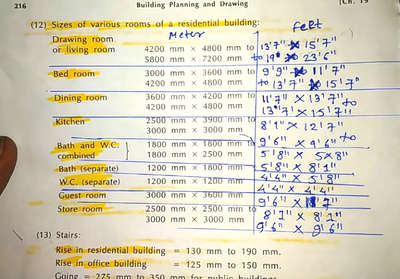 216 Building Planning and Drawing [CH. 19
(12) Sizes of various rooms of a residential building:
Meter feet
Drawing room
or living room 4200 mm × 4800 mm to 13'7" × 15'7"
5800 mm × 7200 mm to 19' × 23'6"
Bed room 3000 mm × 3600 mm to 9'9" × 11'7"
4200 mm × 4800 mm to 13'7" × 15'7"
Dining room 3600 mm × 4200 mm to 11'7" × 13'7" to
4200 mm × 4800 mm 13'7" × 15'7"
Kitchen 2500 mm × 3900 mm to 8'1" × 12'7"
3000 mm × 3000 mm 9'6" × 9'6" to
Bath and W.C. 1800 mm × 1800 mm to
combined 1800 mm × 2500 mm 5'8" × 5×8"
Bath (separate) 1200 mm × 1800 mm 5'8" × 8'1"
W.C. (separate) 1200 mm × 1200 mm 4'4" × 5'8"
4'4" × 4'4"
Guest room 3000 mm × 3600 mm 9'6" × 7"
Store room 2500 mm × 2500 mm to 8'1" × 8'1"
3000 mm × 3000 mm 9'6" × 9'6"
(13) Stairs:
Rise in residential building = 130 mm to 190 mm.
Rise in office building = 125 mm to 150 mm.
Going = 275 mm to 350 mm for public buildings